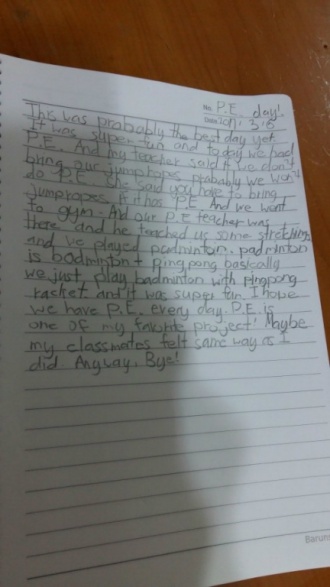 No. P.E. day!
Date
This was probably the best day yet.
It was super fun and today we had
P.E. And my teacher said if we don't
bring our jumpropes probably we won't
do P.E. She said you have to bring
jumpropes if it has P.E. And we went
to gym. And our P.E teacher was
there and he teached us some stretching
and we played padminton. padminton
is badminton + pingpong basically
we just play badminton with pingpong
racket and it was super fun. I hope
we have P.E. every day. P.E. is
one of my favorite project! Maybe
my classmates felt same way as I
did. Anyway, Bye!
Baruns